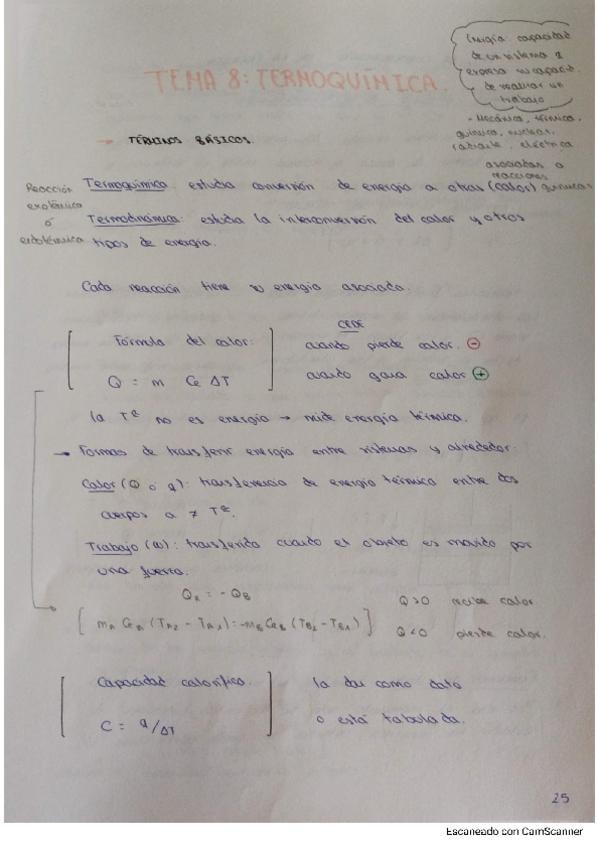 TEMA 8: TERMOQUÍMICA.
Energía: capacidad
de un sistema y
expresa su capacid.
de realizar un
trabajo
- Mecánica, térmica,
química, nuclear,
radiante, eléctrica
→ TÉRMINOS BÁSICOS.
asociadas a
reacciones
químicas
Reacción
exotérmica
ó
endotérmica
Termoquímica: estudia conversión de energía a otras (calor)
Termodinámica: estudia la interconversión del calor y otros
tipos de energía.
Cada reacción tiene su energía asociada.
Fórmula del calor:
Q = m Ce ΔT
CEDE
cuando pierde calor. ⊖
cuando gana calor ⊕
la Tª no es energía → mide energía térmica.
→ Formas de transferir energía entre sistemas y alrededor:
Calor (Q o q): transferencia de energía térmica entre dos
cuerpos a ≠ Tª.
Trabajo (w): transferido cuando el objeto es movido por
una fuerza.
QA = -QB
[ mA CeA (TA2 - TA1) = -mB CeB (TB2 - TB1) ]
Q>0 recibe calor
Q<0 pierde calor.
Capacidad calorífica
C = q/ΔT
la dan como dato
o está tabulada.
25
Escaneado con CamScanner